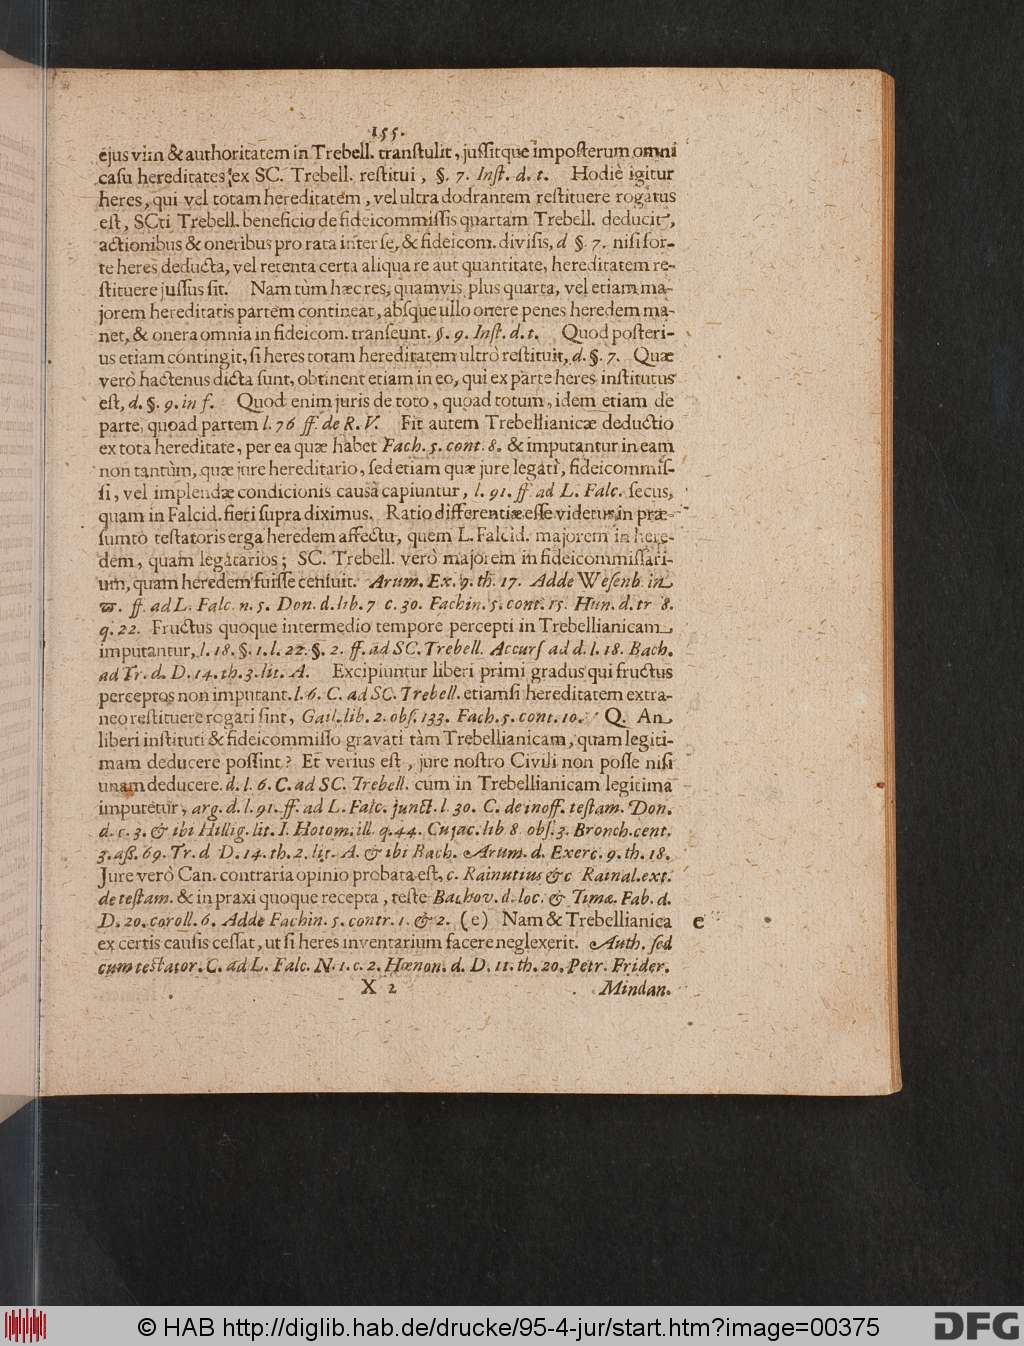 155.
ejus vim & authoritatem in Trebell. transtulit, jussitque imposterum omni
casu hereditates ex SC. Trebell. restitui, §. 7. Inst. d. t. Hodiè igitur
heres, qui vel totam hereditatem, vel ultra dodrantem restituere rogatus
est, SCti Trebell. beneficio de fideicommissis quartam Trebell. deducit,
actionibus & oneribus pro rata inter se, & fideicom. divisis, d §. 7. nisi for-
te heres deducta, vel retenta certa aliqua re aut quantitate, hereditatem re-
stituere jussus sit. Nam tùm hæc res, quamvis plus quarta, vel etiam ma-
jorem hereditatis partem contineat, absque ullo onere penes heredem ma-
net, & onera omnia in fideicom. transeunt. §. 9. Inst. d. t. Quod posteri-
us etiam contingit, si heres totam hereditatem ultrò restituit, d. §. 7. Quæ
verò hactenus dicta sunt, obtinent etiam in eo, qui ex parte heres institutus
est, d. §. 9. in f. Quod enim juris de toto, quoad totum, idem etiam de
parte, quoad partem l. 76 ff. de R. V. Fit autem Trebellianicæ deductio
ex tota hereditate, per ea quæ habet Fach. 5. cont. 8. & imputantur in eam
non tantùm, quæ jure hereditario, sed etiam quæ jure legati, fideicommis-
si, vel implendæ condicionis causa capiuntur, l. 91. ff ad L. Falc. secus,
quam in Falcid. fieri supra diximus. Ratio differentiæ esse videtur in præ-
sumto testatoris erga heredem affectu, quem L. Falcid. majorem in here-
dem, quam legatarios; SC. Trebell. verò majorem in fideicommissari-
um, quam heredem fuisse censuit. Arum. Ex. 9. th. 17. Adde Wesenb. in
π. ff. ad L. Falc. n. 5. Don. d. lib. 7 c. 30. Fachin. 5. cont. 15. Hun. d. tr 8.
q. 22. Fructus quoque intermedio tempore percepti in Trebellianicam
imputantur, l. 18. §. 1. l. 22. §. 2. ff. ad SC. Trebell. Accurs ad d. l. 18. Bach.
ad Tr. d. D. 14. th. 3. lit. A. Excipiuntur liberi primi gradus qui fructus
perceptos non imputant. l. 6. C. ad SC. Trebell. etiamsi hereditatem extra-
neo restituere rogati sint, Gail. lib. 2. obs. 133. Fach. 5. cont. 10. Q. An
liberi instituti & fideicommisso gravati tàm Trebellianicam, quam legiti-
mam deducere possint? Et verius est, jure nostro Civili non posse nisi
unam deducere. d. l. 6. C. ad SC. Trebell. cum in Trebellianicam legitima
imputetur, arg. d. l. 91. ff. ad L. Falc. junct. l. 30. C. de inoff. testam. Don.
d. c. 3. & ibi Hillig. lit. I. Hotom. ill. q. 44. Cujac. lib 8 obs. 3. Bronch. cent.
3. aß. 69. Tr. d D. 14. th. 2. lit. A. & ibi Bach. Arum. d. Exerc. 9. th. 18.
Jure verò Can. contraria opinio probata est, c. Rainutius &c Rainal. ext.
de testam. & in praxi quoque recepta, teste Bachov. d. loc. & Timæ. Fab. d.
D. 20. coroll. 6. Adde Fachin. 5. contr. 1. & 2. (e) Nam & Trebellianica
e
ex certis causis cessat, ut si heres inventarium facere neglexerit. Auth. sed
cum testator. C. ad L. Falc. N. 1. c. 2. Hœnon. d. D. 11. th. 20. Petr. Frider.
X 2
Mindan.
© HAB http://diglib.hab.de/drucke/95-4-jur/start.htm?image=00375
DFG